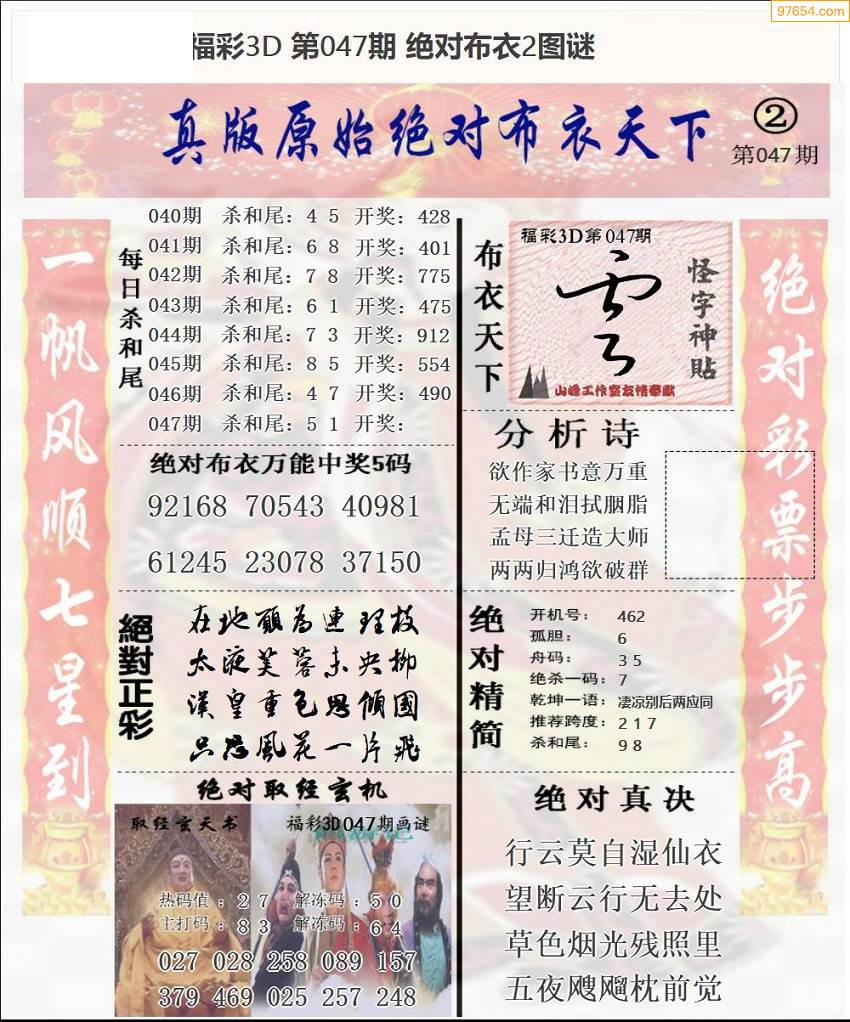 97654.com
福彩3D 第047期 绝对布衣2图谜
真版原始绝对布衣天下
②
第047期
一帆风顺七星到
每日杀和尾
040期 杀和尾：4 5 开奖：428
041期 杀和尾：6 8 开奖：401
042期 杀和尾：7 8 开奖：775
043期 杀和尾：6 1 开奖：475
044期 杀和尾：7 3 开奖：912
045期 杀和尾：8 5 开奖：554
046期 杀和尾：4 7 开奖：490
047期 杀和尾：5 1 开奖：
绝对布衣万能中奖5码
92168 70543 40981
61245 23078 37150
絕對正彩
在地願為連理枝
太液芙蓉未央柳
漢皇重色思傾國
只恐風花一片飛
绝对取经玄机
取经玄天书
福彩3D047期画谜
热码值：2 7 解冻码：5 0
主打码：8 3 解冻码：6 4
027 028 258 089 157
379 469 025 257 248
布衣天下
福彩3D第047期
怪字神貼
山峰工作室友情奉献
分析诗
欲作家书意万重
无端和泪拭胭脂
孟母三迁造大师
两两归鸿欲破群
绝对精简
开机号： 462
孤胆： 6
舟码： 3 5
绝杀一码：7
乾坤一语：凄凉别后两应同
推荐跨度：2 1 7
杀和尾： 9 8
绝对真决
行云莫自湿仙衣
望断云行无去处
草色烟光残照里
五夜飕飗枕前觉
绝对彩票步步高